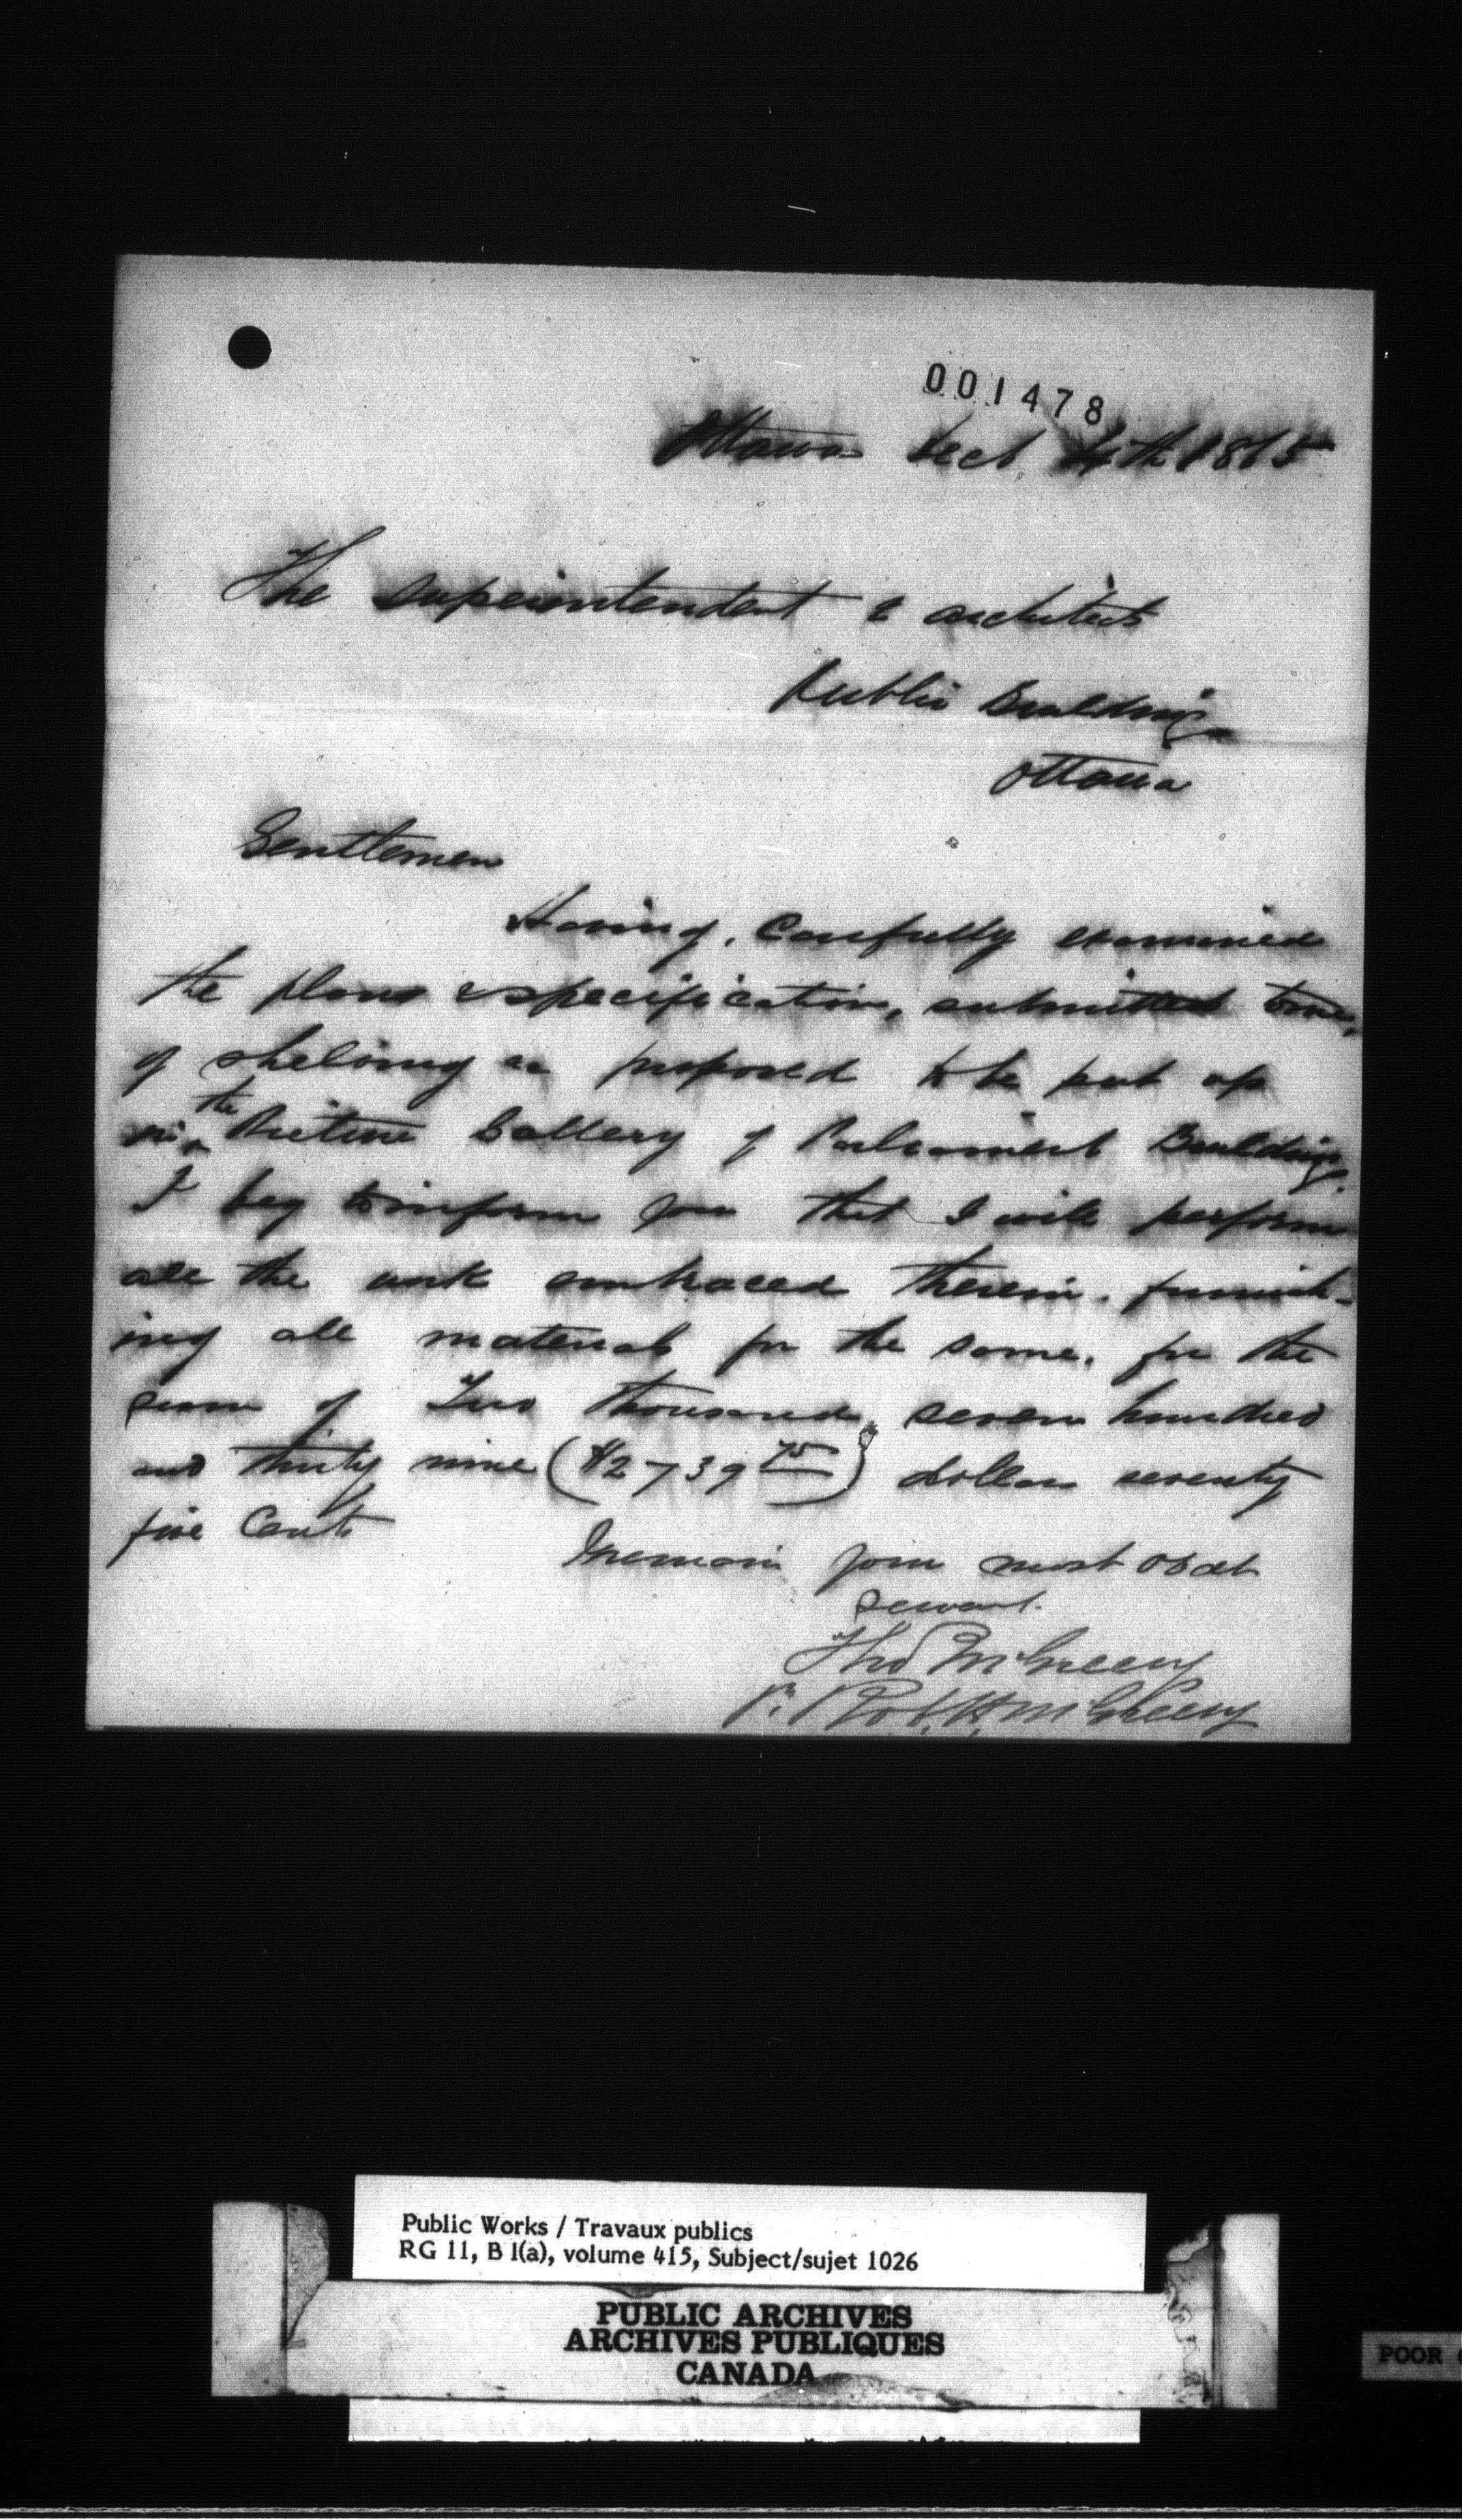 001478
Ottawa Sect 14th 1865
The Superintendent & architects
Public Buildings
Ottawa
Gentlemen
Having, Carefully examined
the plans & specification, submitted to me,
of shelving as proposed to be put up
in the Picture Gallery of Parliament Buildings.
I beg to inform you that I will perform
all the work embraced therein. furnish-
ing all materials for the same, for the
sum of Two thousand, seven hundred
and thirty nine ($2739 75) dollars seventy
five Cents
I remain your most obdt
servant.
Thos McGreevy
pr. Robt. H. McGreevy
Public Works / Travaux publics
RG 11, B 1(a), volume 415, Subject/sujet 1026
PUBLIC ARCHIVES
ARCHIVES PUBLIQUES
CANADA
POOR